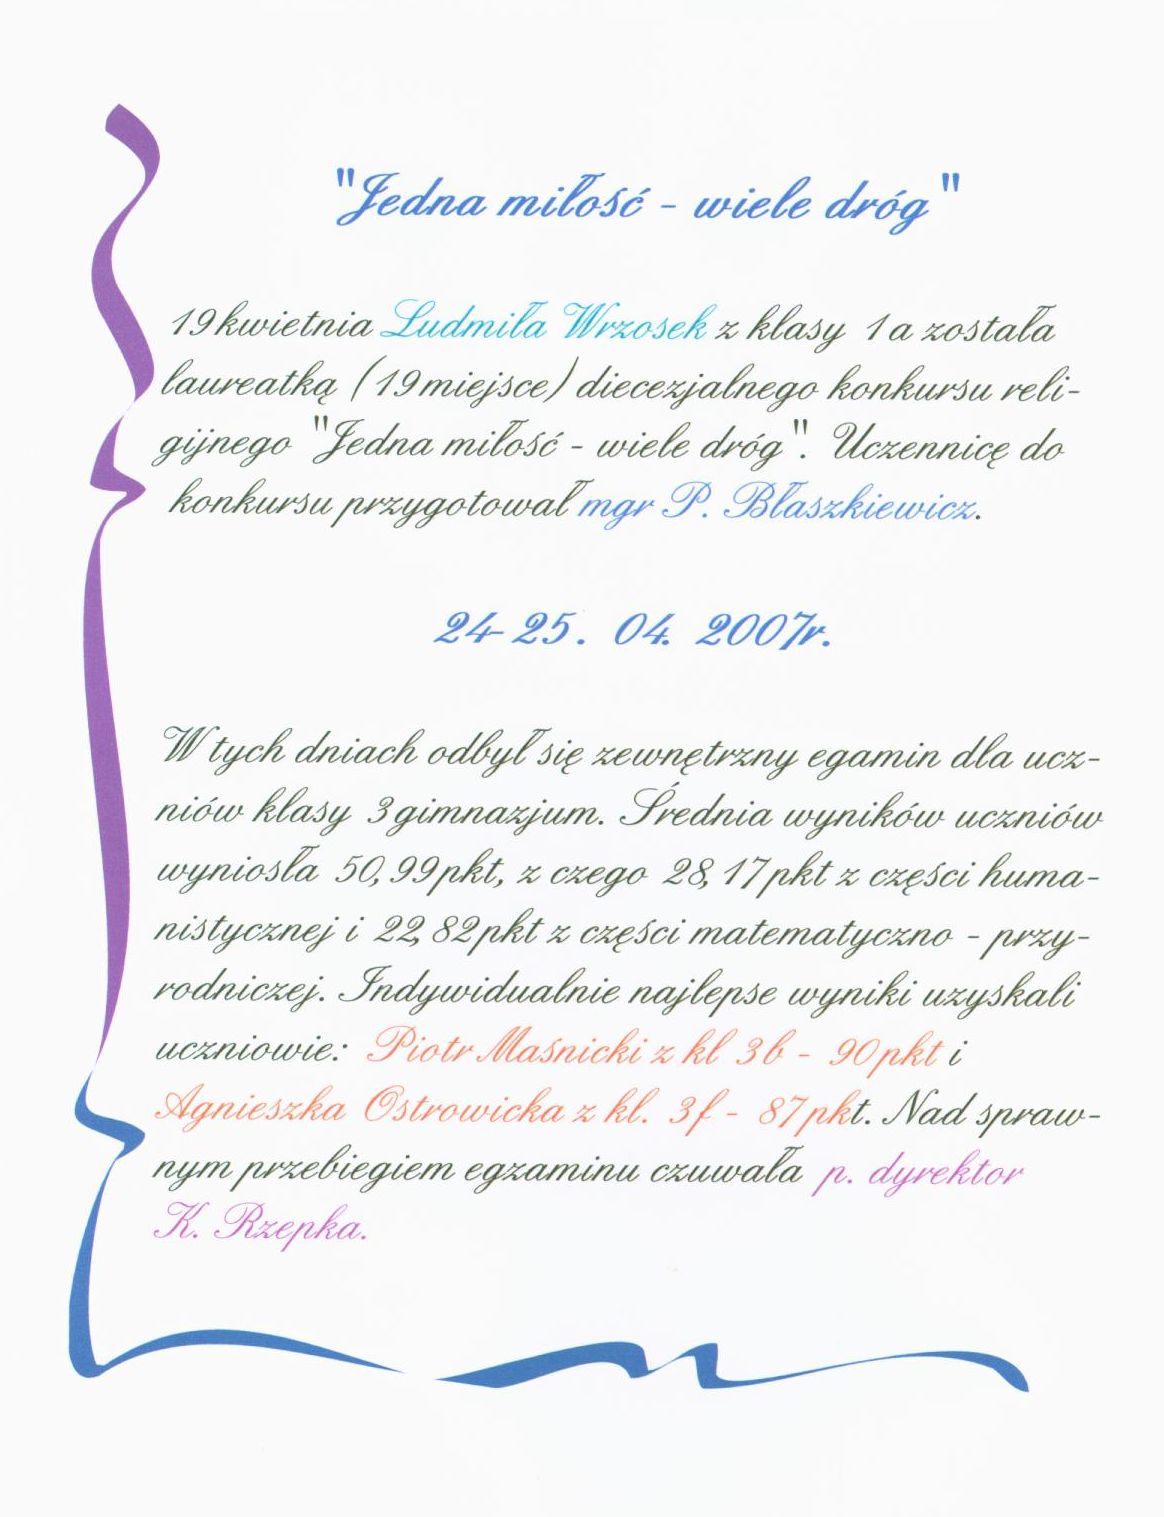 "Jedna miłość - wiele dróg"
19 kwietnia Ludmiła Wrzosek z klasy 1a została
laureatką (19 miejsce) diecezjalnego konkursu reli-
gijnego "Jedna miłość - wiele dróg". Uczennicę do
konkursu przygotował mgr P. Błaszkiewicz.
24-25. 04. 2007r.
W tych dniach odbył się zewnętrzny egamin dla ucz-
niów klasy 3 gimnazjum. Średnia wyników uczniów
wyniosła 50,99pkt, z czego 28,17pkt z części huma-
nistycznej i 22,82pkt z części matematyczno - przy-
rodniczej. Indywidualnie najlepse wyniki uzyskali
uczniowie: Piotr Maśnicki z kl 3b - 90pkt i
Agnieszka Ostrowicka z kl. 3f - 87pkt. Nad spraw-
nym przebiegiem egzaminu czuwała p. dyrektor
K. Rzepka.